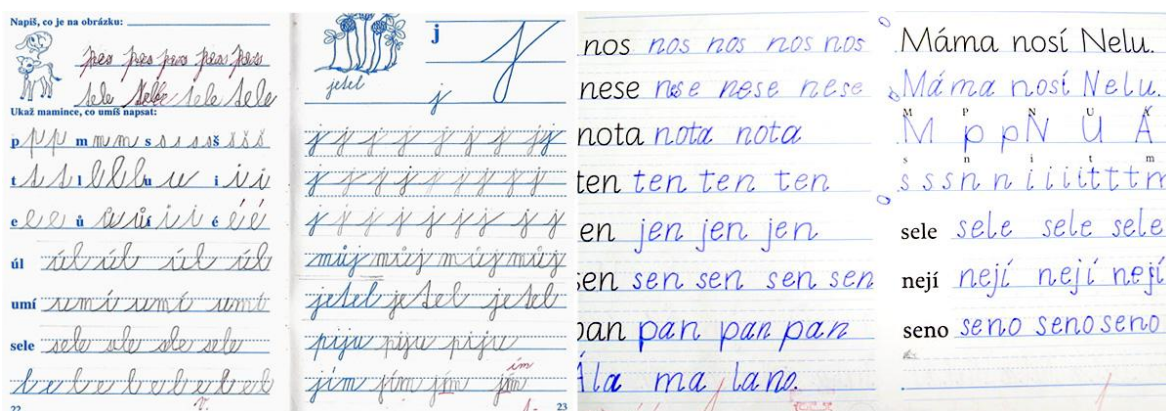 Napiš, co je na obrázku:
pes pes pes pes pes
tele tele tele tele
Ukaž mamince, co umíš napsat:
p p p p m m m m s s s s s š š š š
t t t t l l l l u u u i i i i
e e e e ů ů ů í í í é é é
úl úl úl úl úl
umí umí umí umí
sele sele sele sele sele
22
j j
jetel
j
j j j j j j j j j
j j j j j j j j
j j j j j j j j
můj můj můj můj
jetel jetel jetel
piju piju piju
jím jím jím jím
jím
23
nos nos nos nos nos
nese nese nese nese
nota nota nota
ten ten ten ten
en jen jen jen
sen sen sen sen sen
pan pan pan pan
Ála má lano.
Máma nosí Nelu.
Máma nosí Nelu.
M P N U Á
M p p N U Á
s n i t m
s s s n n i i i i t t t m
sele sele sele sele
nejí nejí nejí nejí
seno seno seno seno